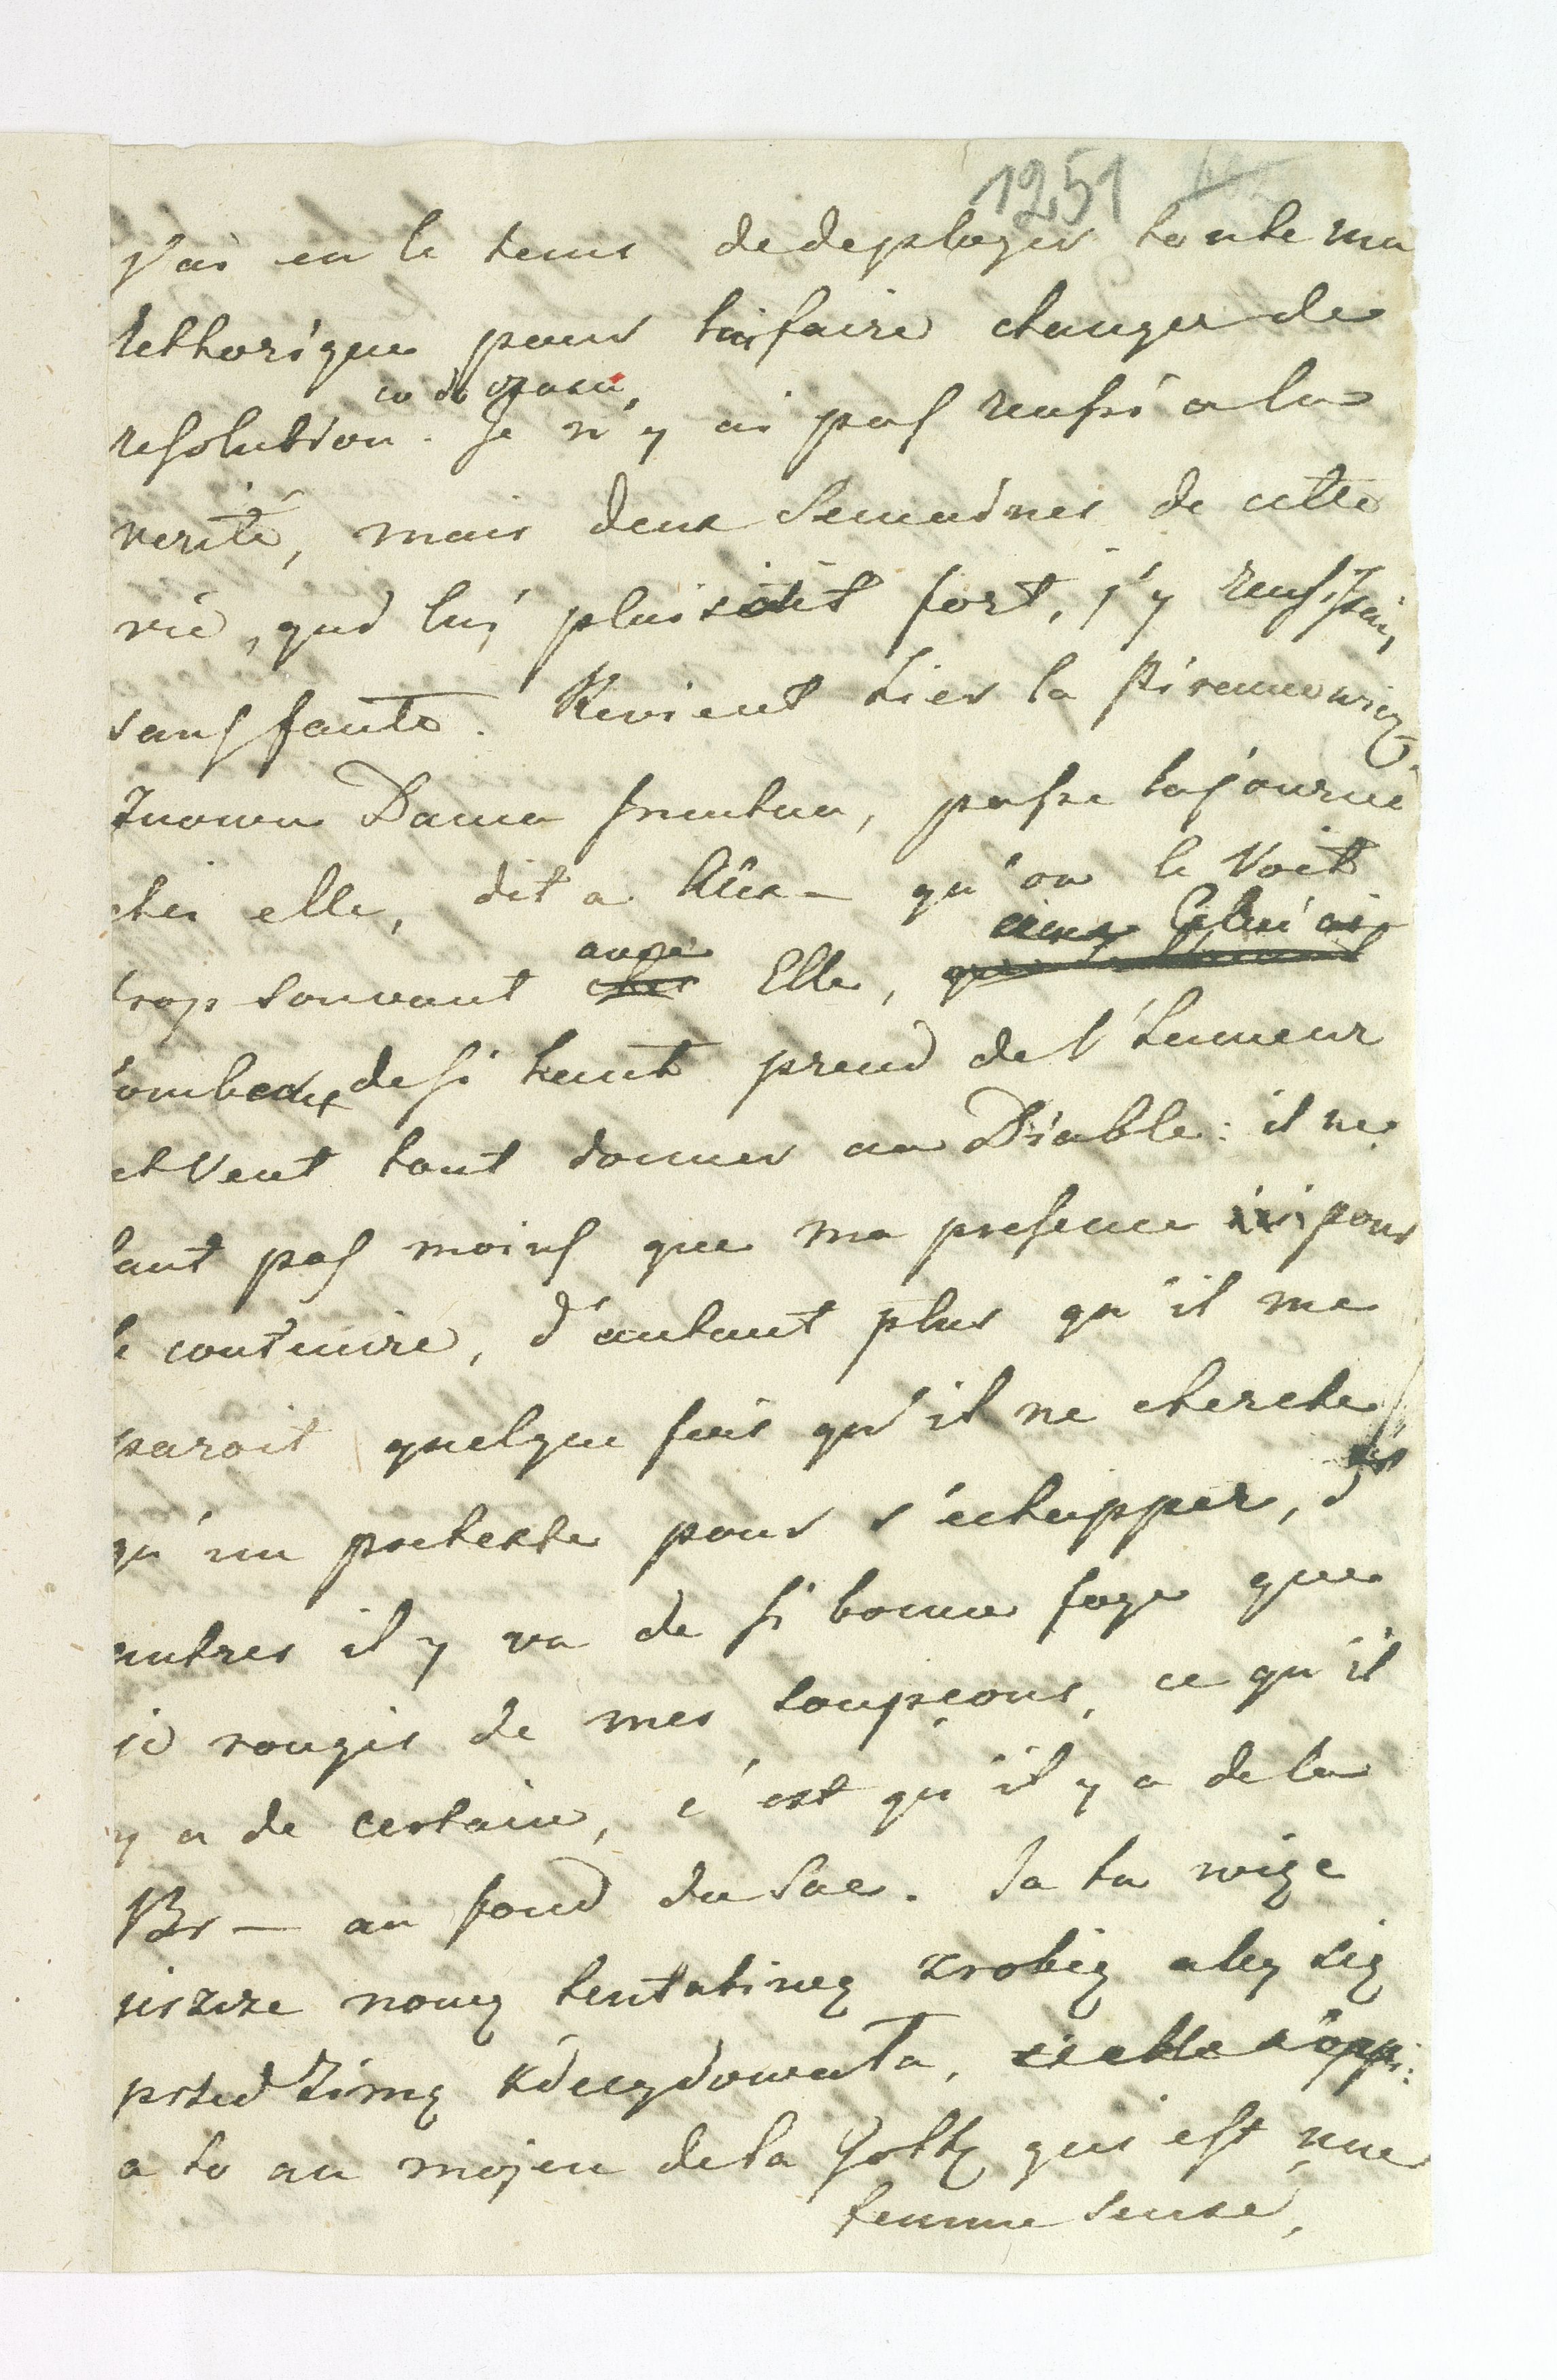 1251
j'ai eu le tems de deployer toute ma
Rethorique pour lui faire changer de
co do czasu,
resolution. Je n'y ai pas reussi a la
verité, mais deux Semaines de cette
vie, qui lui plaisoit fort, j'y reussissois
sans faute. Revient hier la
znowu Dama smutna, passe la journé
ches elle, dit a qu'on le Voit
trop souvant avec Elle,
tombeaux de si haut prend de l'humeur
et Veut tout donner au Diable: il ne
faut pas moins que ma presence ici pour
le contenire, d'autant plus qu'il me
paroit quelque fois qu'il ne cherche
qu'un pretexte pour s'echapper, d'
autres il y va de si bonne foye que
je rougis de mes soupçons, ce qu'il
y a de certain, c'est qu'il y a de la
Br— au fond du Sac. Ja tu więc
jeszcze nową tentativę zrobię aby się
przed zimą zdecydowała,
a to au mojen de la Goltz qui est une
femme sensé,